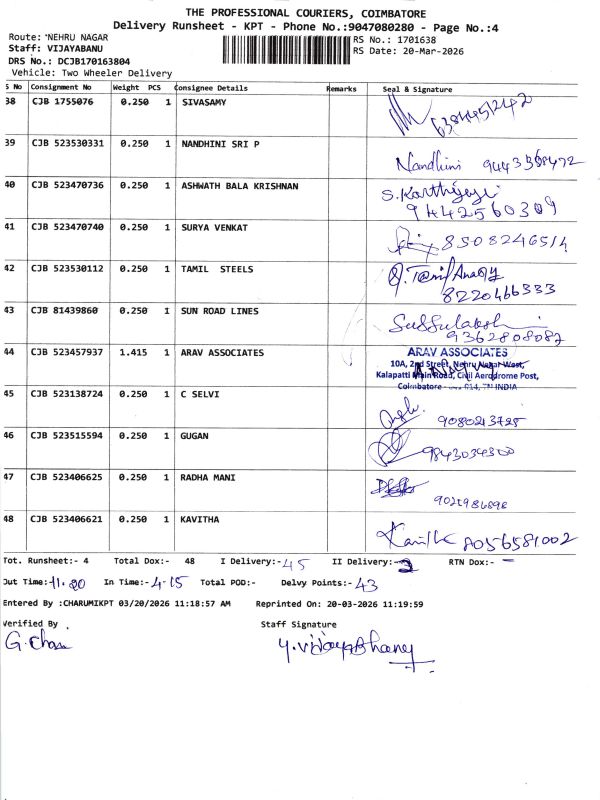 THE PROFESSIONAL COURIERS, COIMBATORE
Delivery Runsheet - KPT - Phone No.:9047080280 - Page No.:4
Route: NEHRU NAGAR
RS No.: 1701638
Staff: VIJAYABANU
RS Date: 20-Mar-2026
DRS No.: DCJB170163804
Vehicle: Two Wheeler Delivery
S No Consignment No Weight PCS Consignee Details Remarks Seal & Signature
38 CJB 1755076 0.250 1 SIVASAMY
39 CJB 523530331 0.250 1 NANDHINI SRI P
Nandhini
40 CJB 523470736 0.250 1 ASHWATH BALA KRISHNAN
S. Karthiyayi
9442560309
41 CJB 523470740 0.250 1 SURYA VENKAT
8508246514
42 CJB 523530112 0.250 1 TAMIL STEELS
8220466333
43 CJB 81439860 0.250 1 SUN ROAD LINES
9362808087
44 CJB 523457937 1.415 1 ARAV ASSOCIATES
ARAV ASSOCIATES
10A, 2nd Street, Nehru Nagar West,
Kalapatti Main Road, Civil Aerodrome Post,
Coimbatore - 014, TN INDIA
45 CJB 523138724 0.250 1 C SELVI
9080243725
46 CJB 523515594 0.250 1 GUGAN
9843034300
47 CJB 523406625 0.250 1 RADHA MANI
48 CJB 523406621 0.250 1 KAVITHA
Kavitha 8056581002
Tot. Runsheet:- 4 Total Dox:- 48 I Delivery:- 45 II Delivery:- 3 RTN Dox:- -
Out Time:- 11.20 In Time:- 4-15 Total POD:- Delvy Points:- 43
Entered By :CHARUMIKPT 03/20/2026 11:18:57 AM Reprinted On: 20-03-2026 11:19:59
Verified By Staff Signature
G. Charu Y. VijayaBhanu